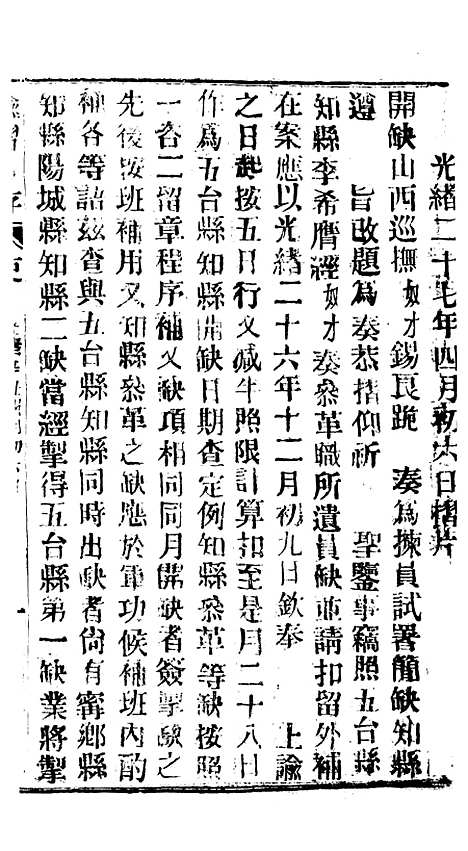 光緒二十七年四月初六日摺片
開缺山西巡撫奴才錫良跪　奏為揀員試署簡缺知縣
遵　旨改題為奏恭摺仰祈　聖鑒事竊照五台縣
知縣李希膺經奴才奏叅革職所遺員缺並請扣留外補
在案應以光緒二十六年十二月初九日欽奉　上諭
之日起按五日行文減半照限計算扣至是月二十八日
作為五台縣知縣開缺日期查定例知縣叅革等缺按照
一咨二留章程序補又缺項相同同月開缺者簽掣缺之
先後按班補用又知縣叅革之缺應於軍功候補班內酌
補各等語茲查與五台縣知縣同時出缺者尙有甯鄉縣
知縣陽城縣知縣二缺當經掣得五台縣第一缺業將掣